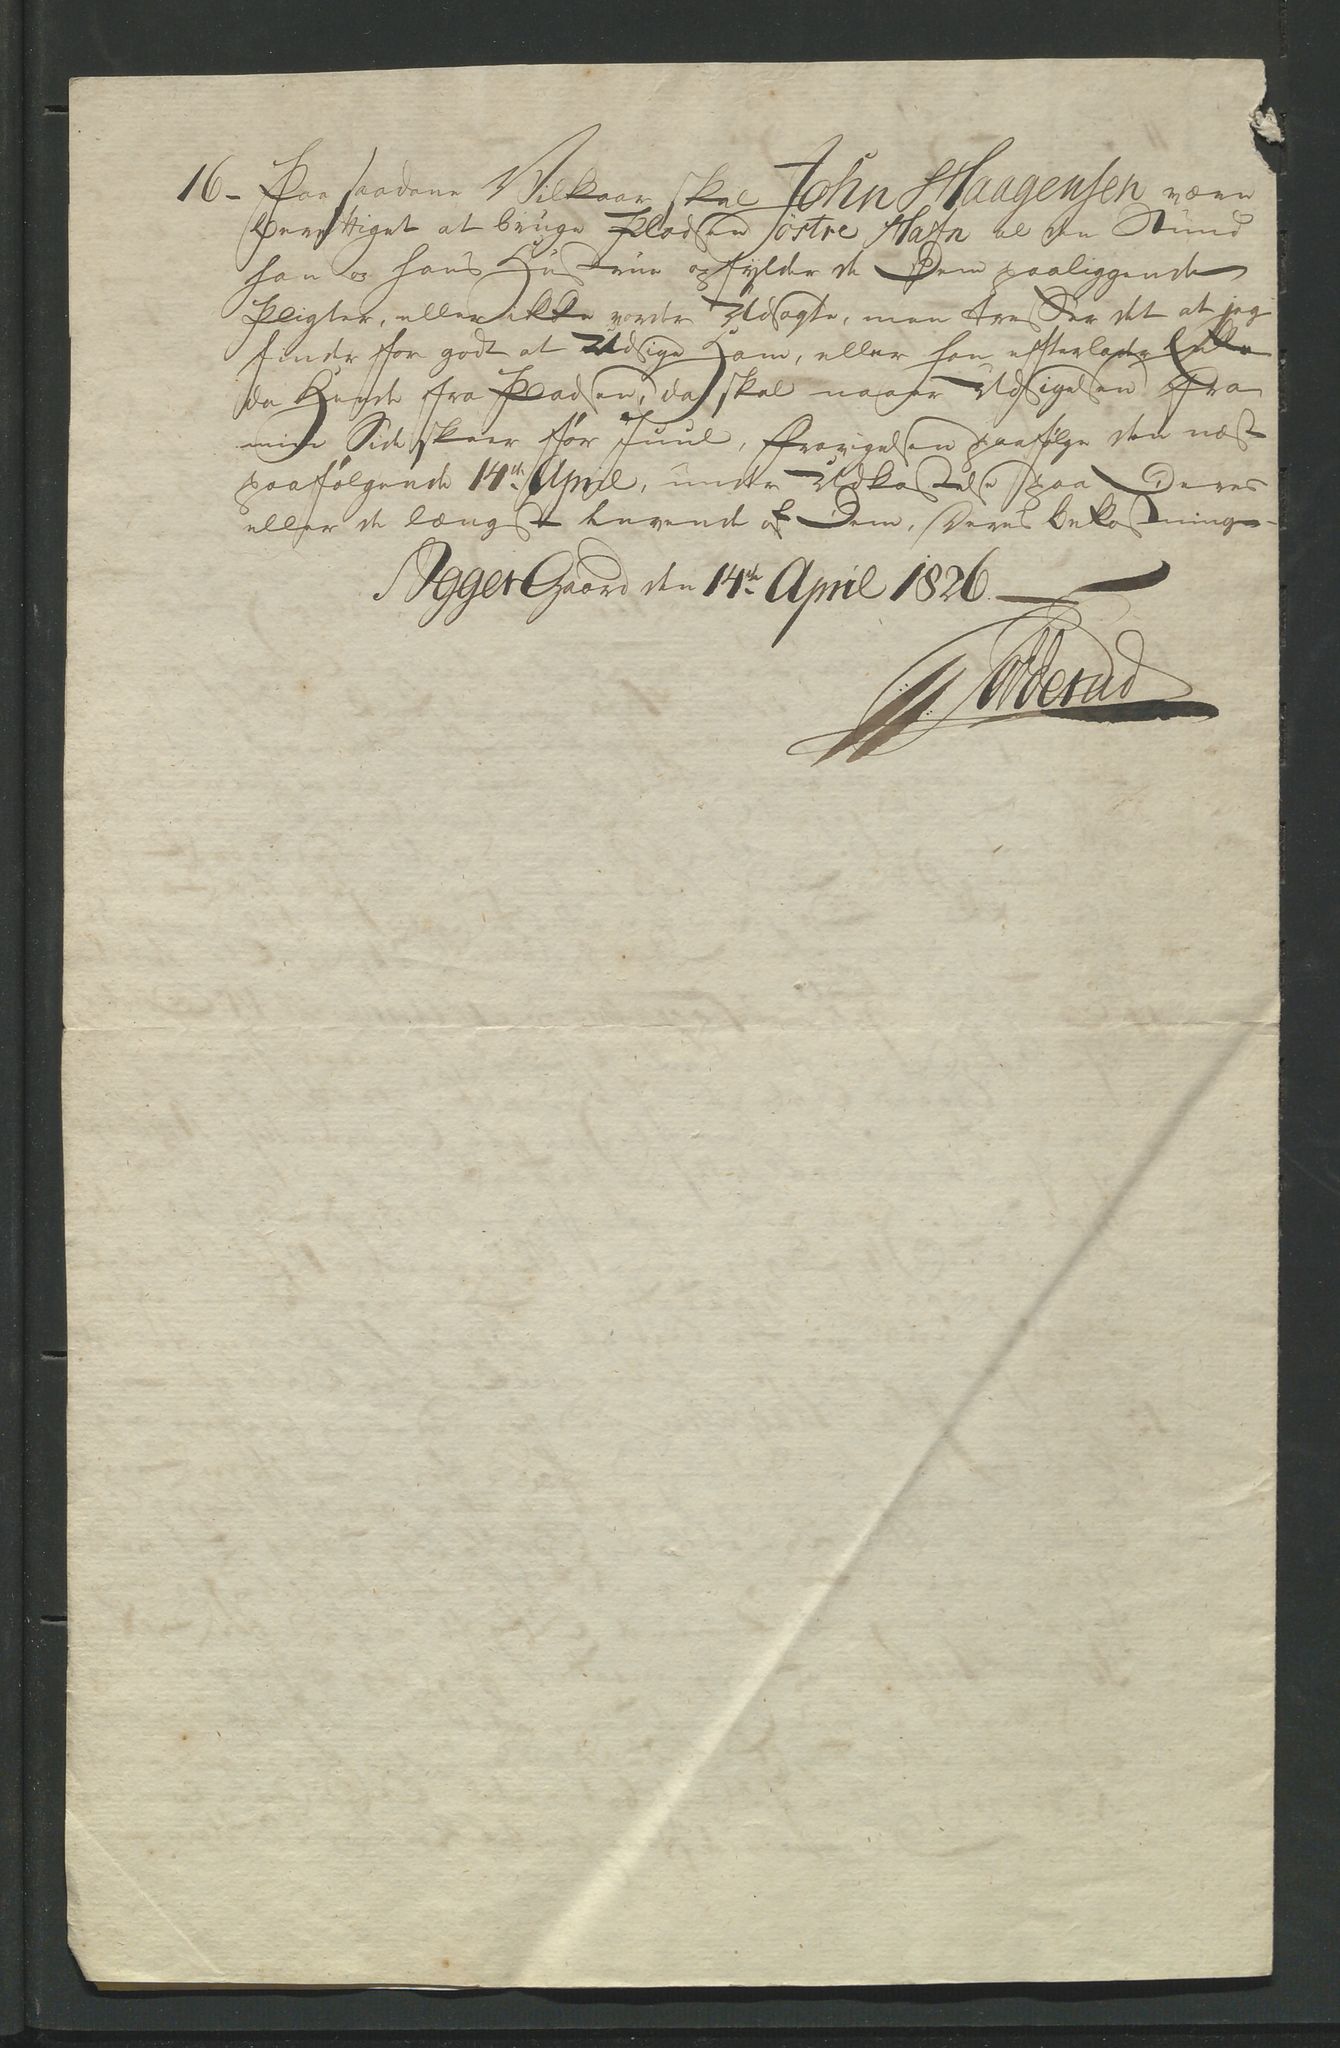 16- Paa saadane Vilkaar skal John Haagensen være
berettiget at bruge Pladsen östre Hafn al den Stund
han og hans Hustrue opfylder de Dem paaliggende
Pligter, eller ikke vorder Udsagte, men træffer det at jeg
finder for godt at Udsige Ham, eller han efterlader
da Hende fra Pladsen, da skal naar Udsigelsen fra
min Side skeer før Juul, fravigelsen paafølge den næst
paafølgende 14de April, under Udkastelse paa Deres
eller de længst levende af Dem, Deres bekostning-
AggerGaard den 14de April 1826.